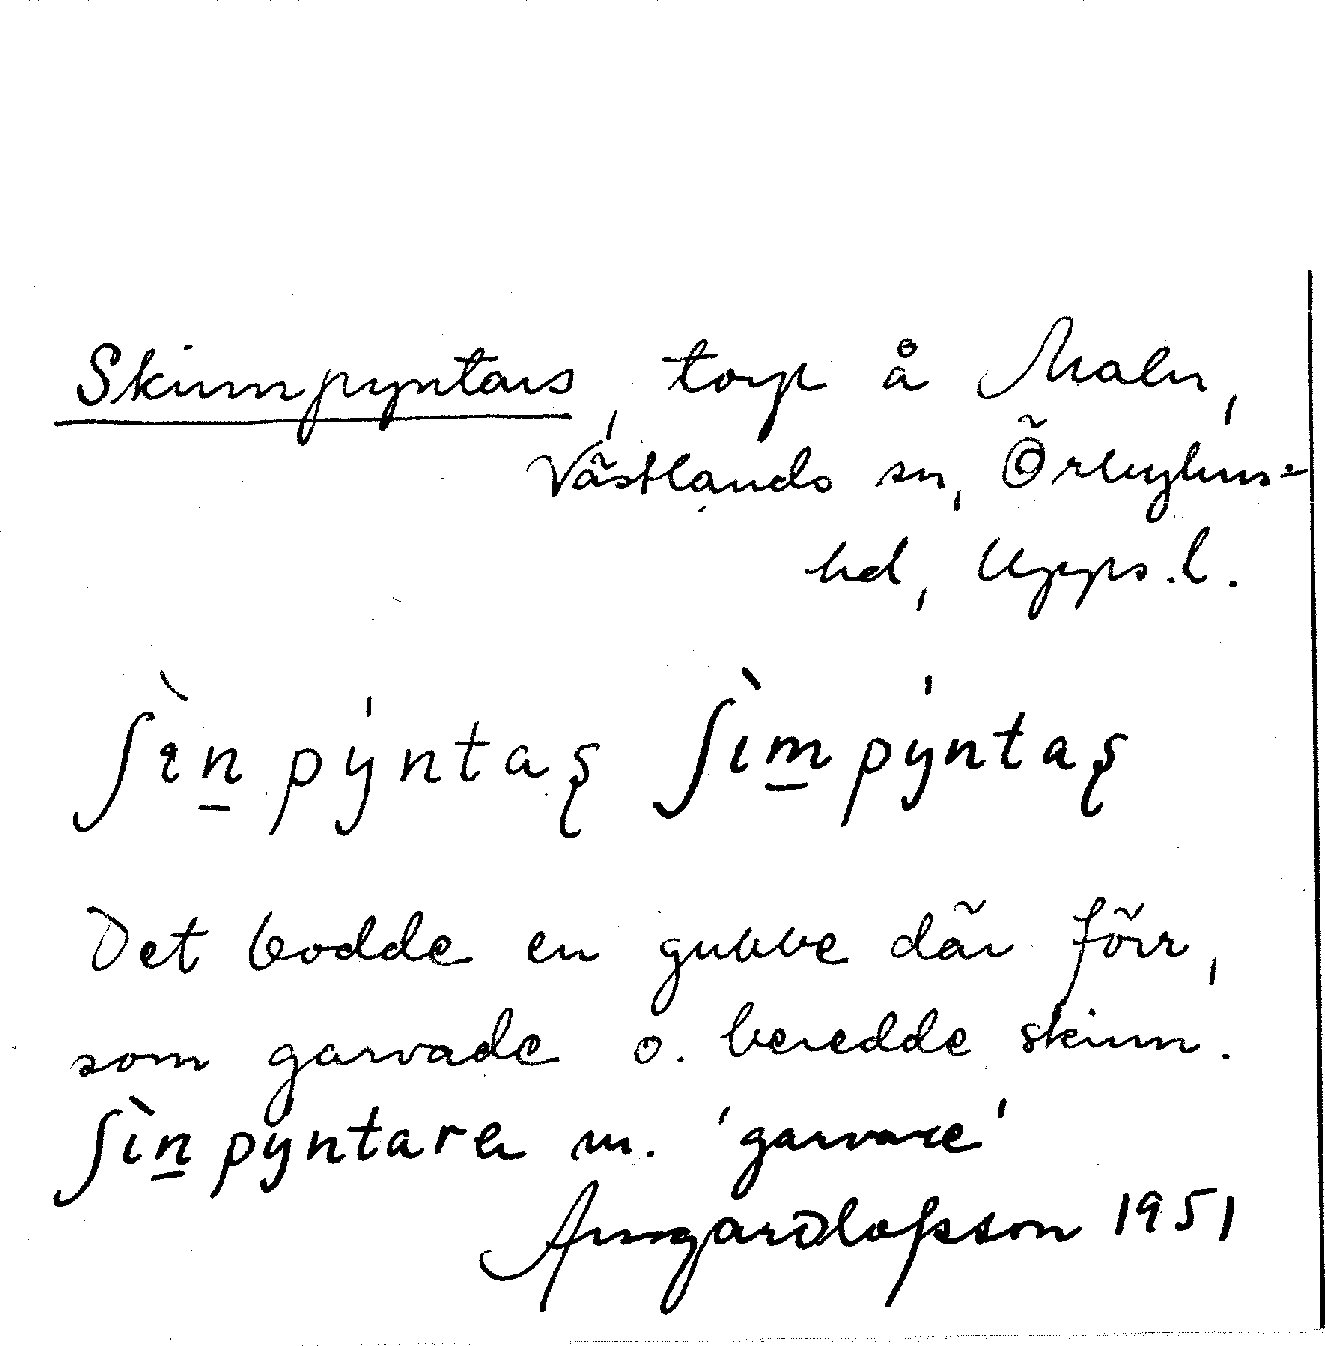 Skinnpyntars, torp å Maln,
Västlands sn, Örbyhus=
hd, Upps. l.
ʃìn̲pýntaʂ ʃìm̲pýntaʂ
Det bodde en gubbe där förr,
som garvade o. beredde skinn.
ʃìn̲pyntarer m. 'garvare'
Olofsson 1951